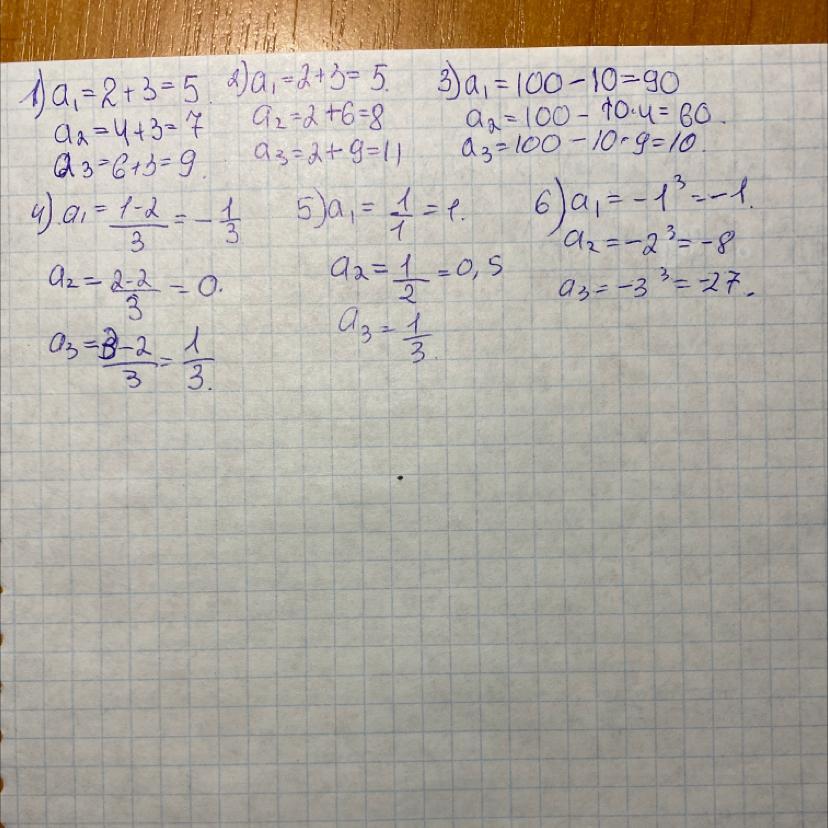 1) a₁ = 2 + 3 = 5.
a₂ = 4 + 3 = 7
a₃ = 6 + 3 = 9.
2) a₁ = 2 + 3 = 5.
a₂ = 2 + 6 = 8
a₃ = 2 + 9 = 11
3) a₁ = 100 − 10 = 90
a₂ = 100 − 10 · 4 = 60.
a₃ = 100 − 10 · 9 = 10.
4) a₁ = (1 − 2)/3 = −1/3
a₂ = (2 − 2)/3 = 0.
a₃ = (3 − 2)/3 = 1/3.
5) a₁ = 1/1 = 1.
a₂ = 1/2 = 0,5
a₃ = 1/3.
6) a₁ = −1³ = −1.
a₂ = −2³ = −8
a₃ = −3³ = −27.